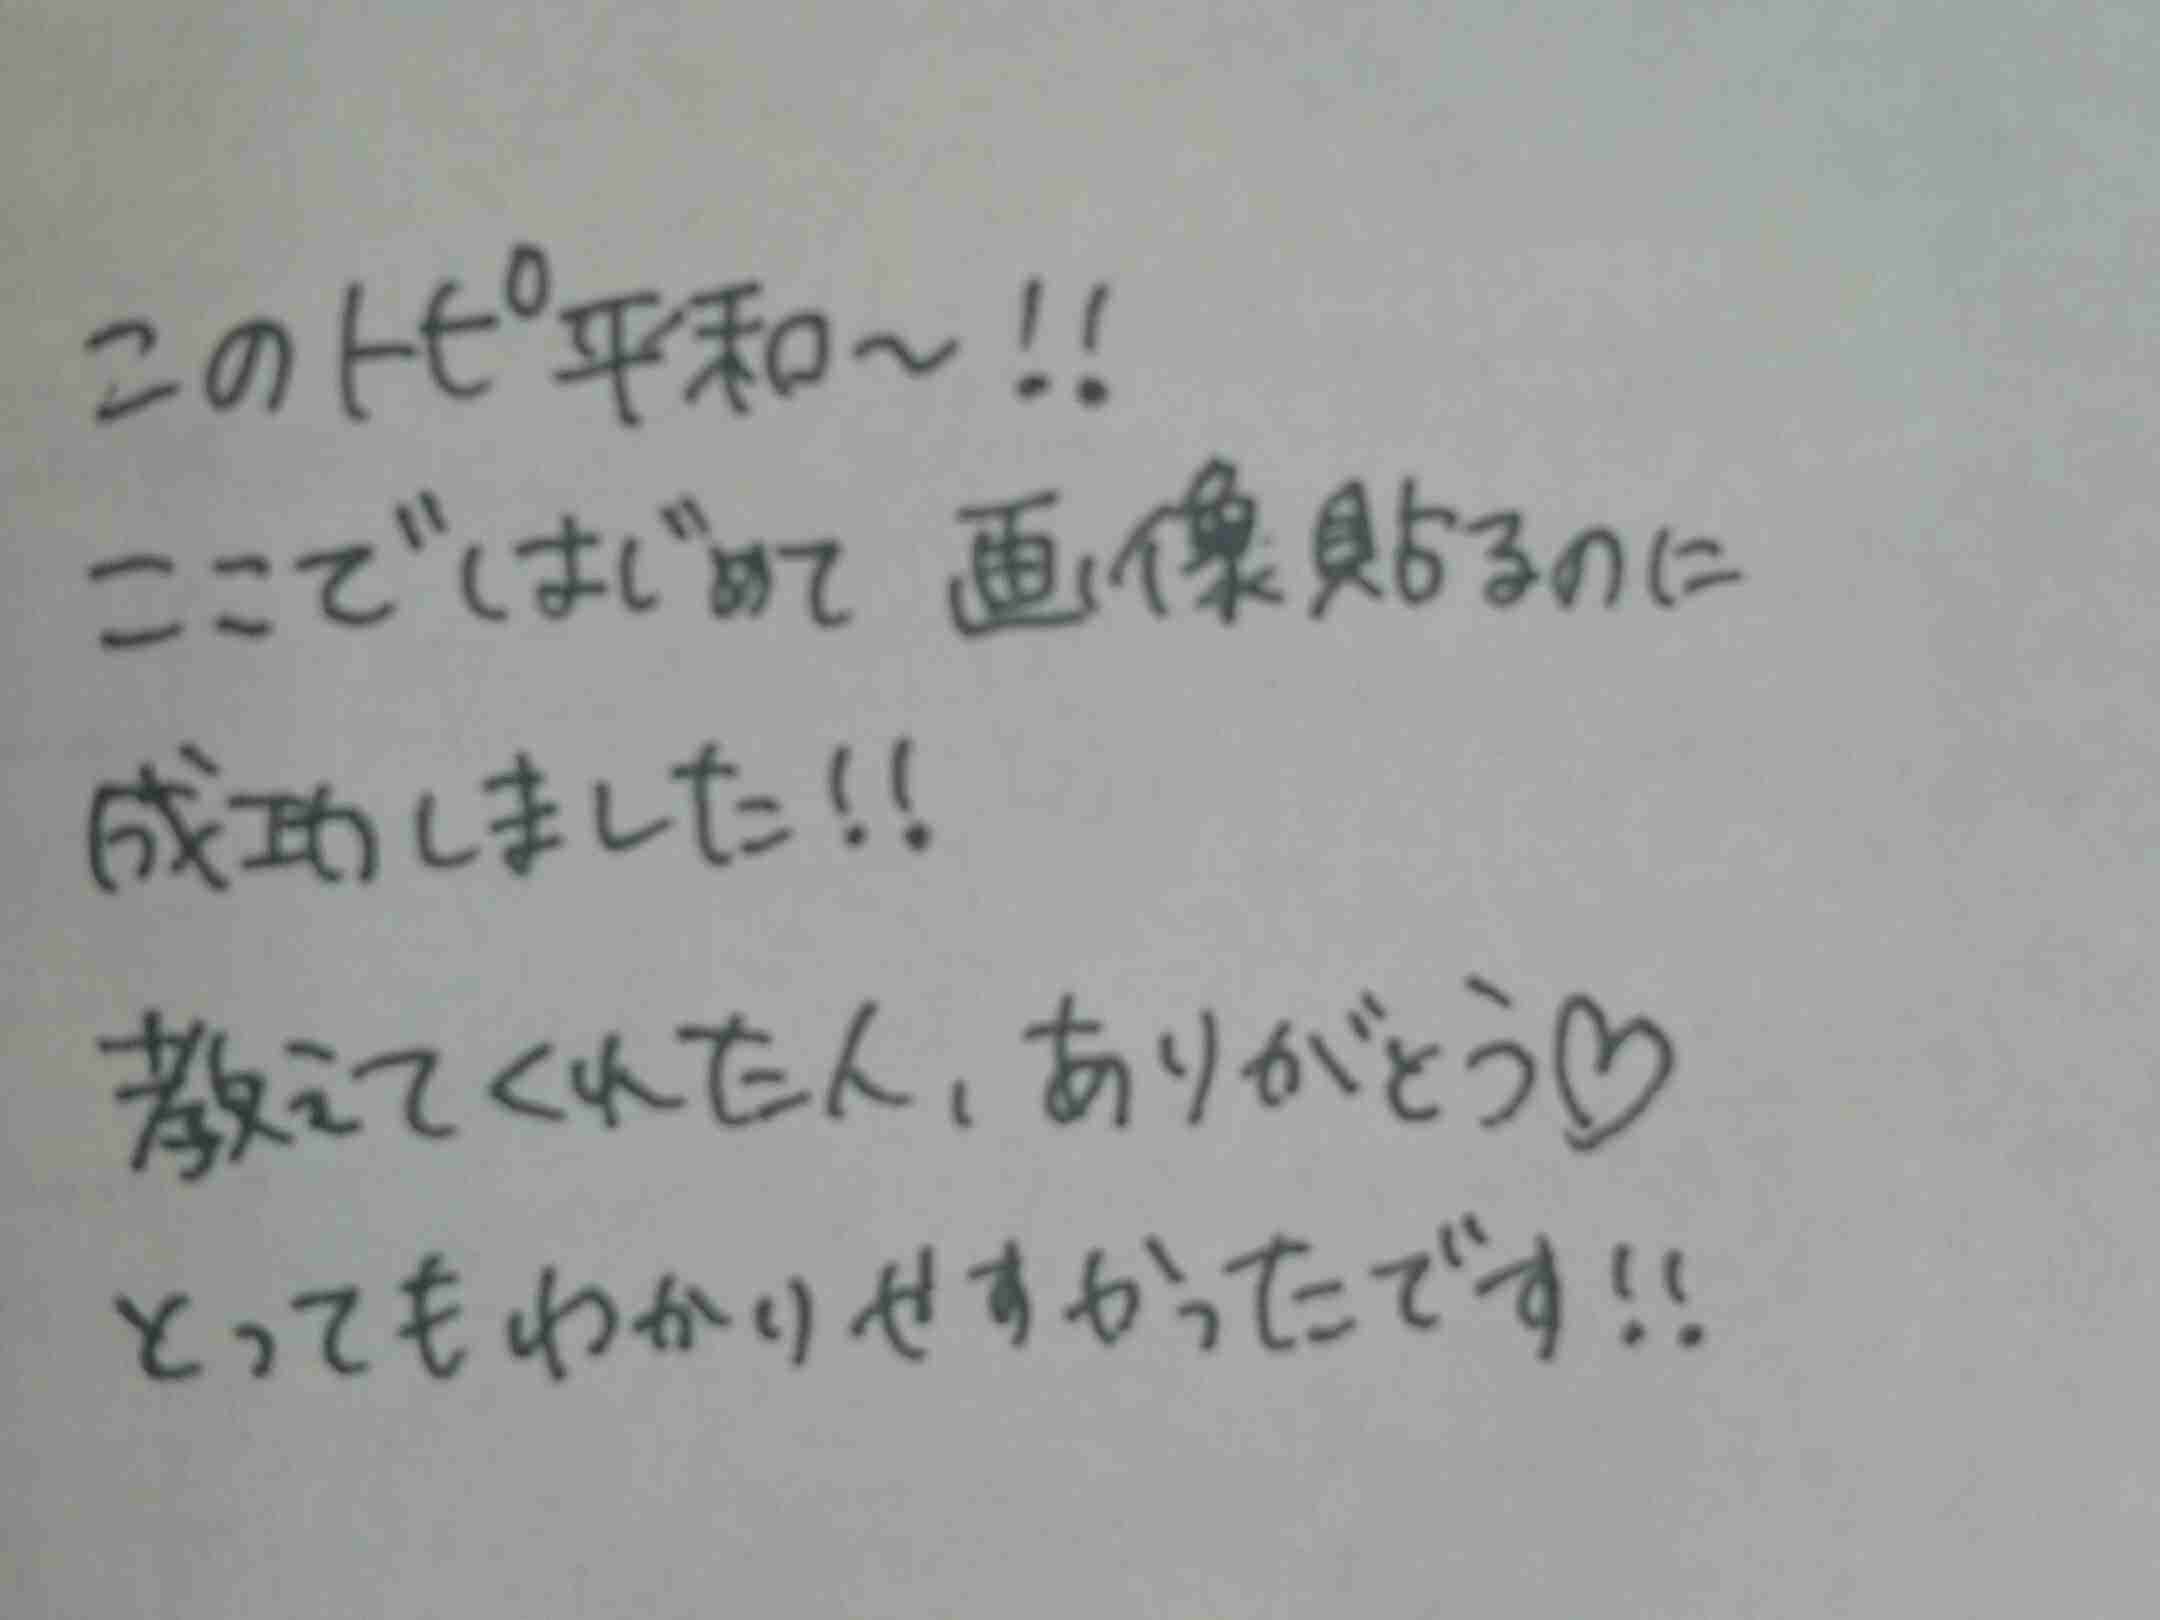 このトピ平和～!!
ここではじめて 画像貼るのに
成功しました!!
教えてくれた人、ありがとう♡
とってもわかりやすかったです!!